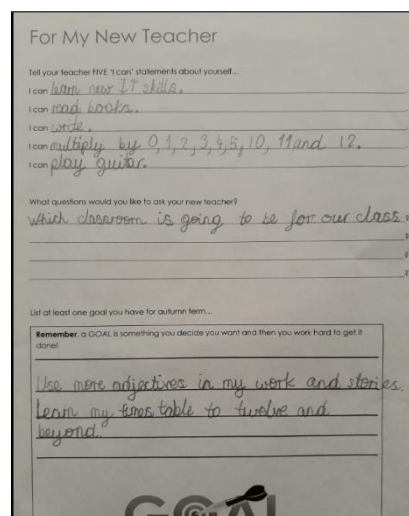 For My New Teacher
Tell your teacher FIVE 'I can' statements about yourself...
I can learn new IT skills.
I can read books.
I can write.
I can multiply by 0, 1, 2, 3, 4, 5, 10, 11 and 12.
I can play guitar.
What questions would you like to ask your new teacher?
Which classroom is going to be for our class ?
?
?
List at least one goal you have for autumn term...
Remember, a GOAL is something you decide you want and then you work hard to get it
done!
Use more adjectives in my work and stories.
Learn my times table to twelve and
beyond.
GOAL